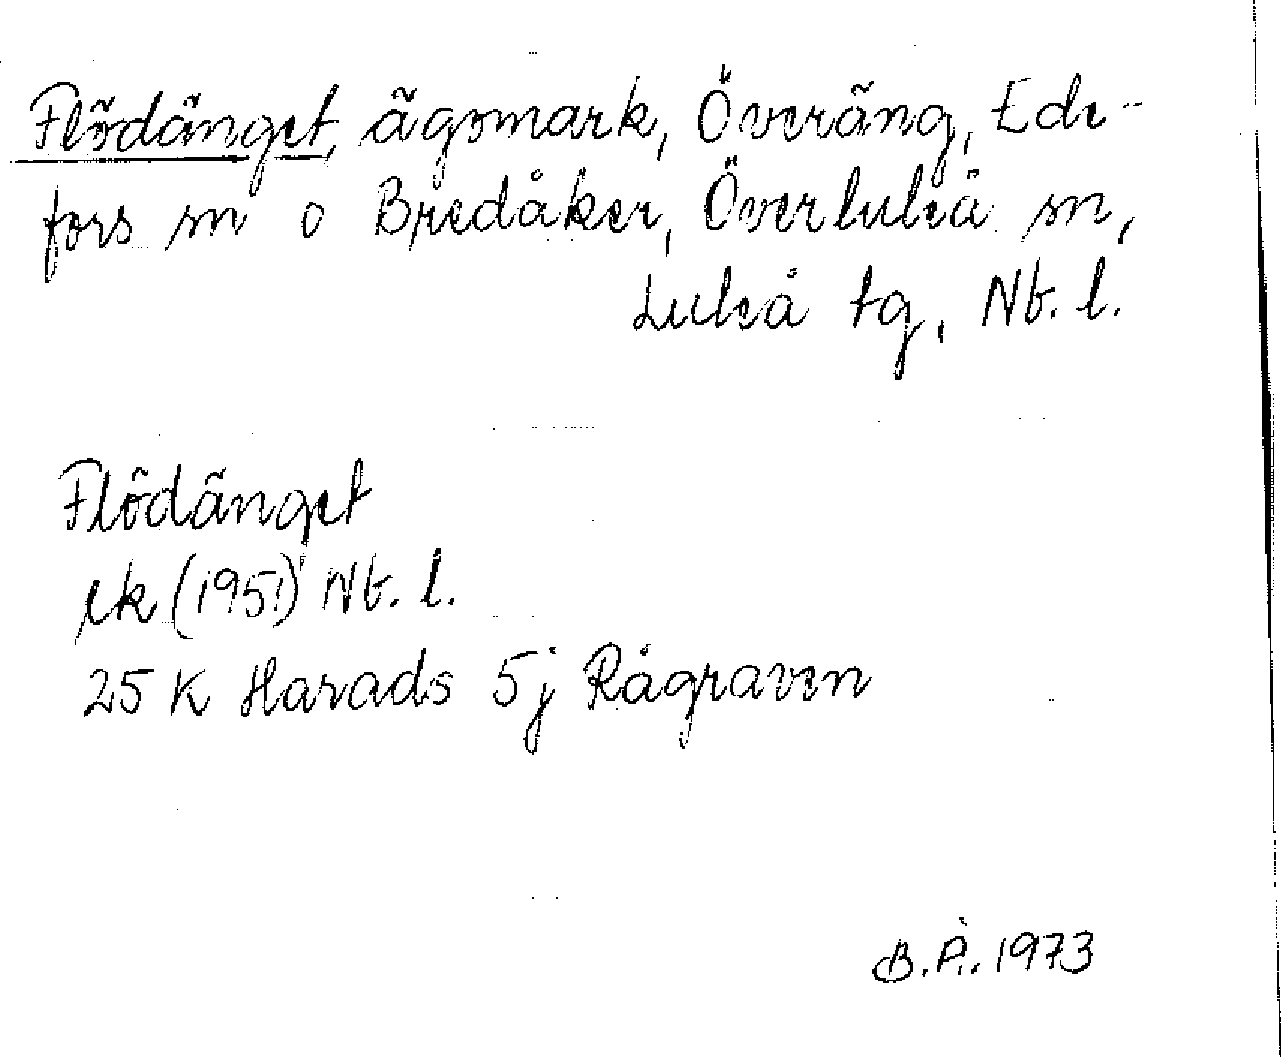 Flödänget, ägomark, Överäng, Ede-
fors sn o Bredåker, Överluleå sn,
Luleå tg, Nb. l.
Flödänget
ek (1951) Nb. l.
25 K Harads 5j Rågraven
B.Å. 1973